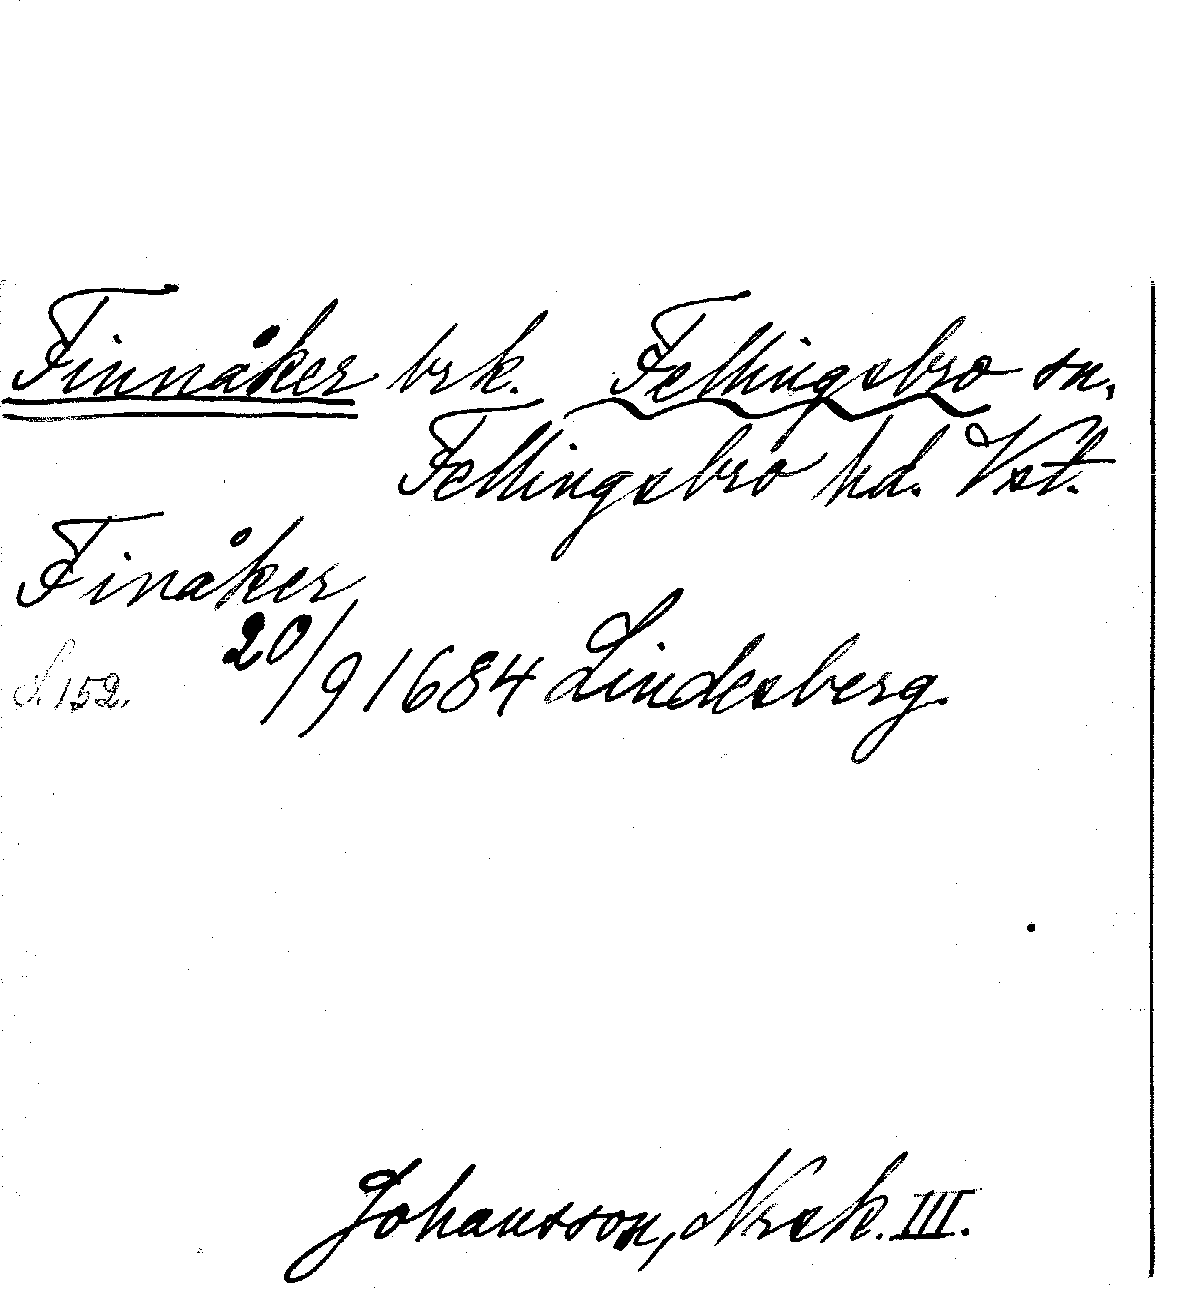 Finnåker brk. Fellingsbro sn.
Fellingsbro hd. Vst.
Finåker
S. 152. 20/9 1684 Lindesberg.
Johansson, Noraskog. III.